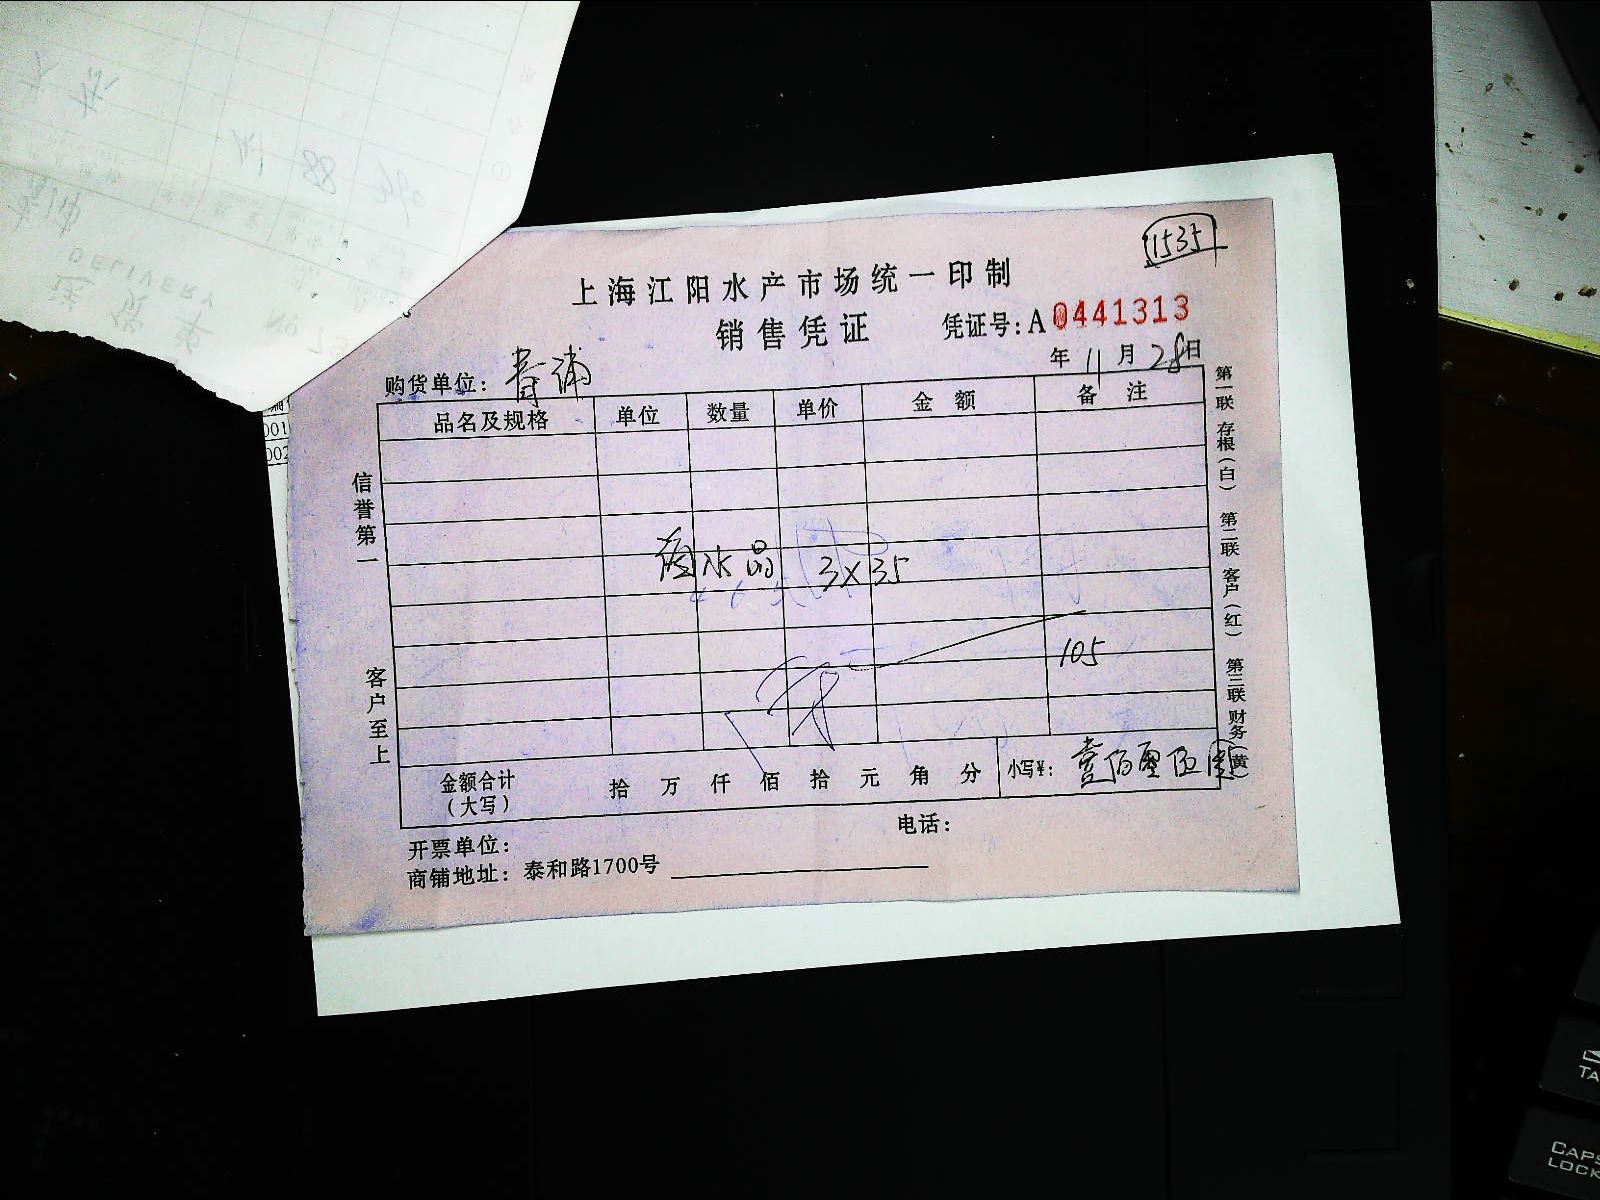 1535
上海江阳水产市场统一印制
销售凭证
凭证号:A 0441313
年 11 月 28 日
购货单位: 青浦
品名及规格 单位 数量 单价 金额 备注
水晶 3×35
105
金额合计(大写) 拾 万 仟 佰 拾 元 角 分 小写¥: 壹佰零伍
开票单位:
电话:
商铺地址: 泰和路1700号
信誉第一
客户至上
第一联 存根(白) 第二联 客户(红) 第三联 财务(黄)
DELIVERY
No
88
001
002
CAPS
LOCK